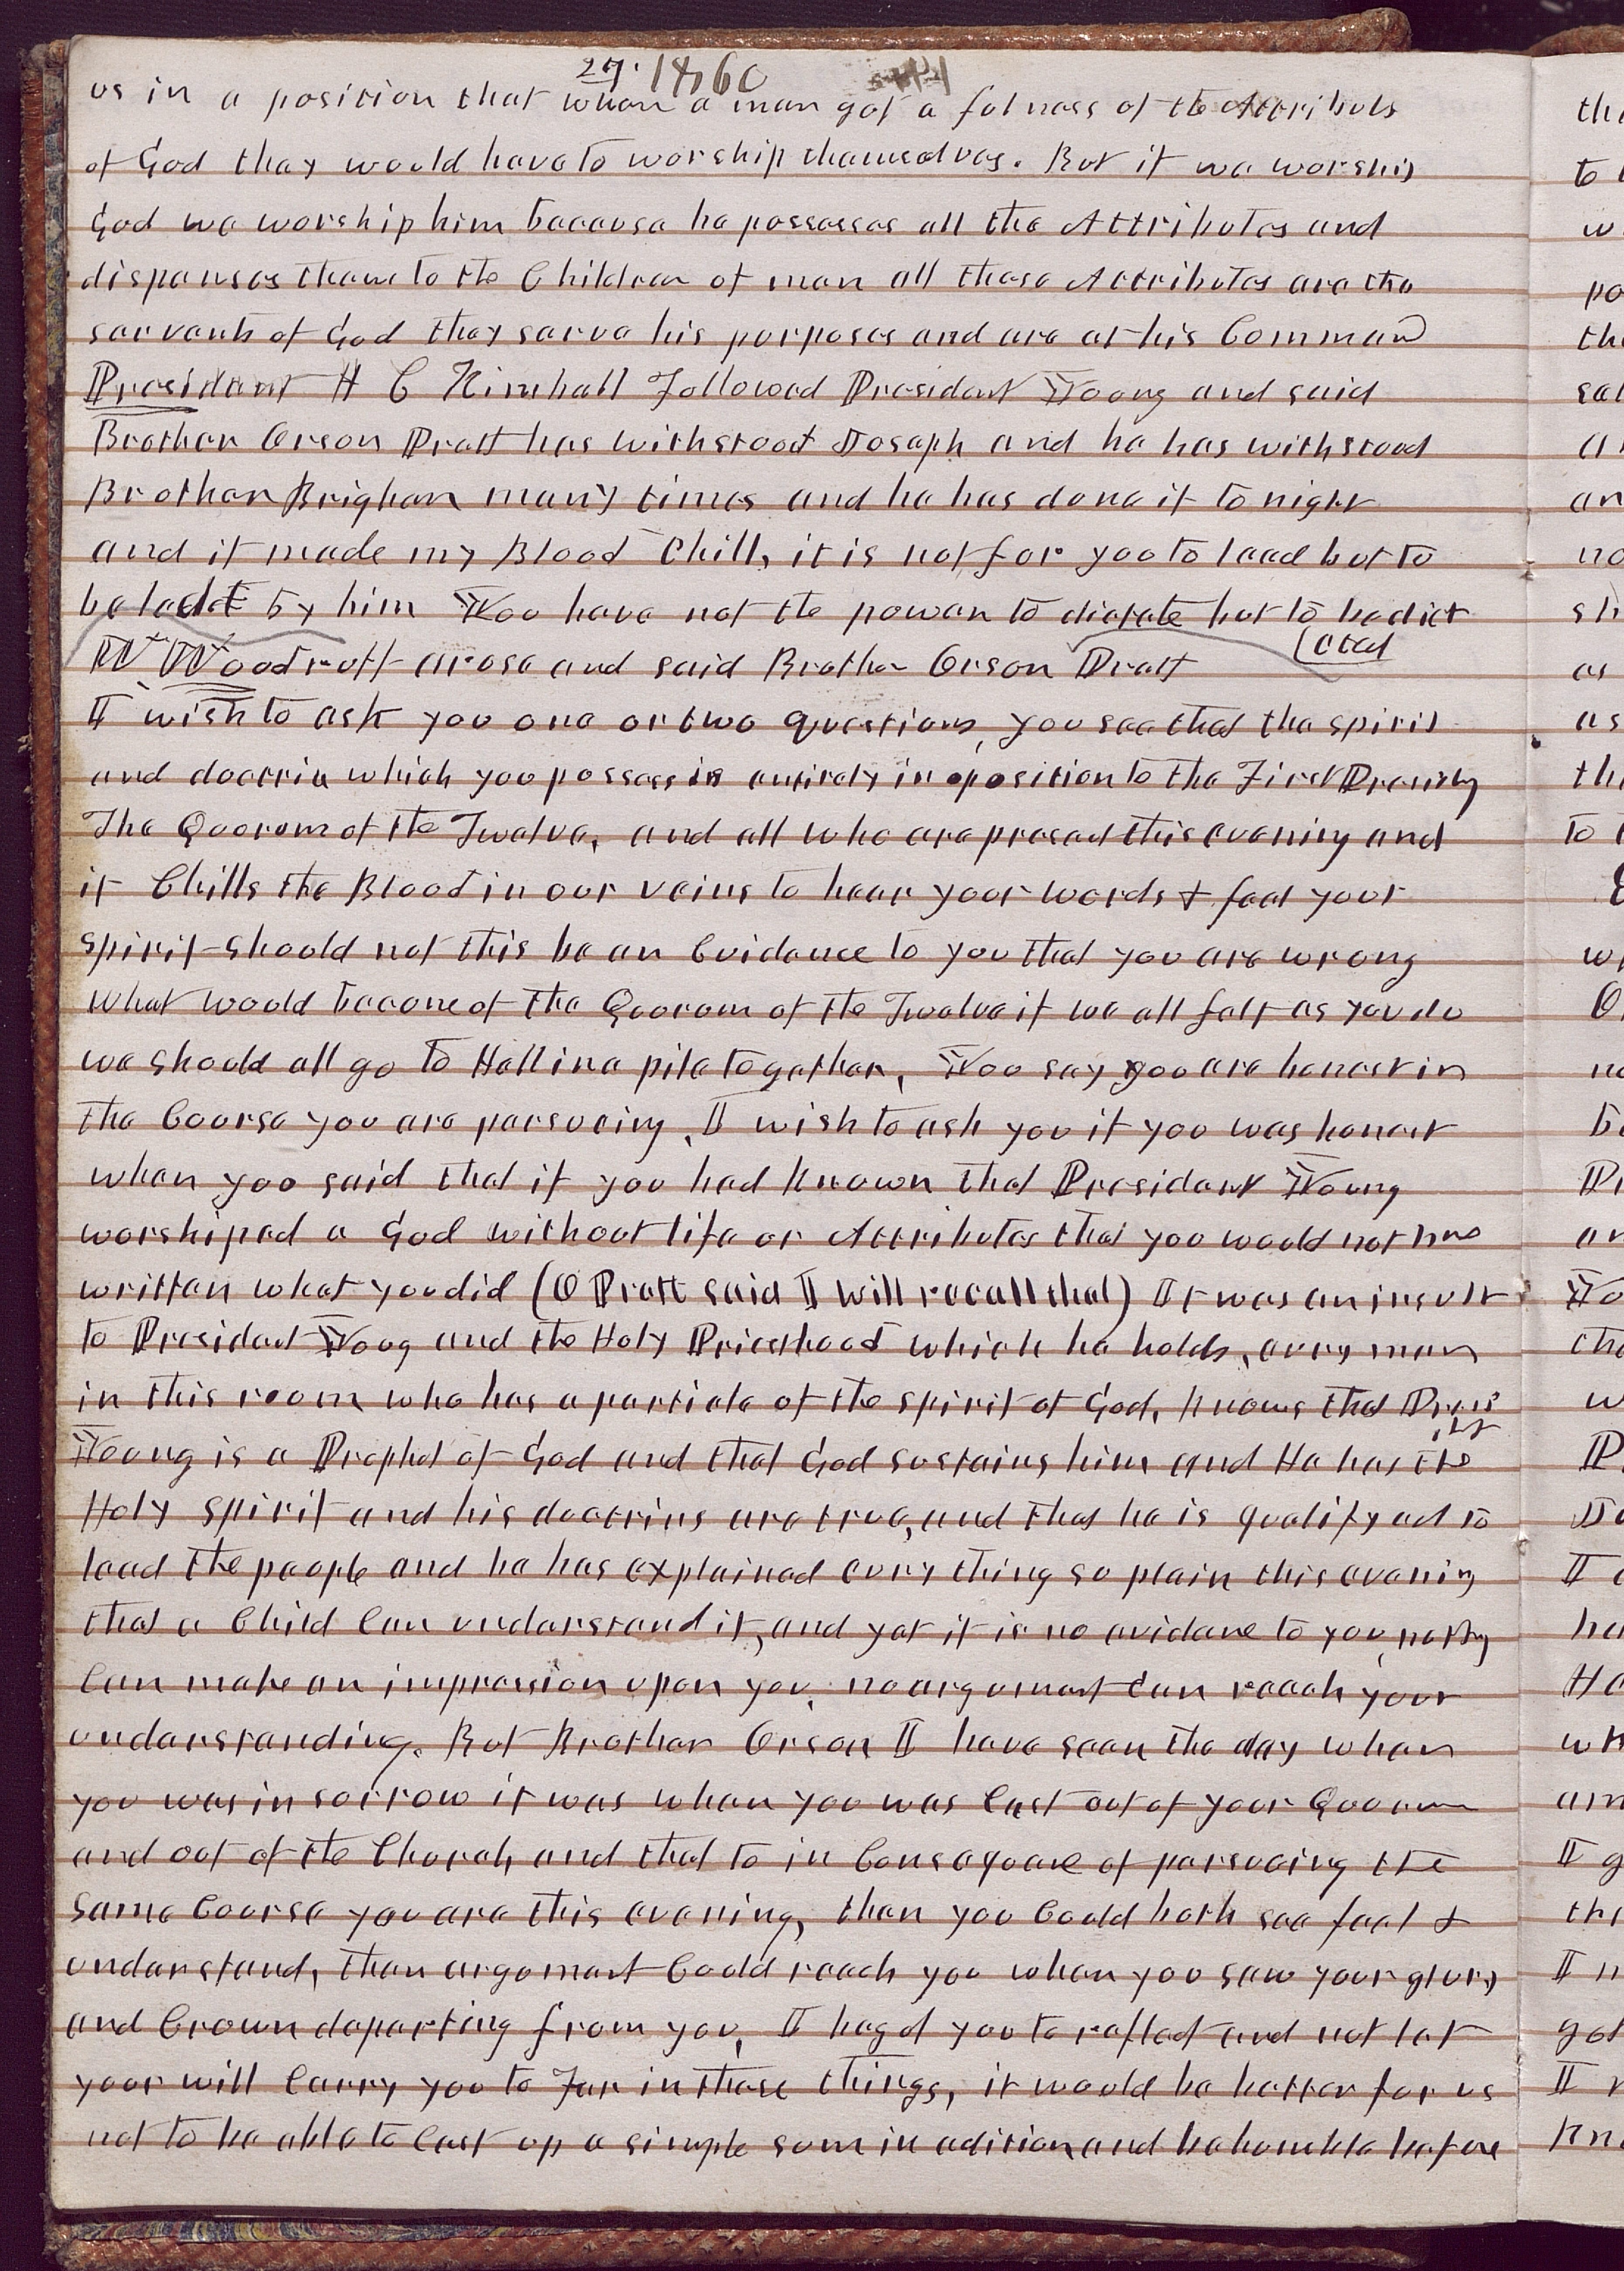 27. 1860
us in a position that when a man got a fulness of the Attributs
of God they would have to worship themselves. But if we worship
God we worship him because he possesses all the Attributes and
dispenses them to the Children of men all these Attributes are the
servants of God they serve his purposes and are at his Command
President H C Kimball Followed President Young and said
Brother Orson Pratt has withstood Joseph and he has withstood
Brother Brigham many times and he has done it to night
and it made my Blood Chill, it is not for you to lead but to
be led by him You have not the power to dictate but to be dict
(ated
W Woodruff arose and said Brother Orson Pratt
I wish to ask you one or two questions, you see that the spirit
and doctrin which you possess is entirely in oposition to the First Presidency
The Quorum of the Twelve, and all who are present this evening and
it Chills the Blood in our veins to hear your words & feel your
spirit should not this be an Evidence to you that you are wrong
what would become of the Quorum of the Twelve if we all felt as you do
we should all go to Hell in a pile together, You say you are honest in
the Course you are persueing. I wish to ask you if you was honest
when you said that if you had known that President Young
worshiped a God without life or Attributes that you would not have
written what you did (O Pratt said I will recall that) It was an insult
to President Young and the Holy Priesthood which he holds, every man
in this room who has a particle of the spirit of God, knows that Presidet
Young is a Prophet of God and that God sustains him and He has the
Holy spirit and his doctrins are true, and that he is qualifyed to
lead the people and he has explained evry thing so plain this evening
that a Child Can understand it, and yet it is no evidence to you, nothing
Can make an impression upon you, no argument Can reach your
understanding. But Brother Orson I have seen the day when
you was in sorrow it was when you was Cast out of your Quorum
and out of the Church and that to in Consequence of persueing the
same Course you are this evening, then you Could both see feel &
understand, then argument Could reach you when you saw your glory
and Crown departing from you, I beg of you to reflect and not let
your will Carry you to Far in these things, it would be better for us
not to be able to Cast up a simple sum in adition and be humble before